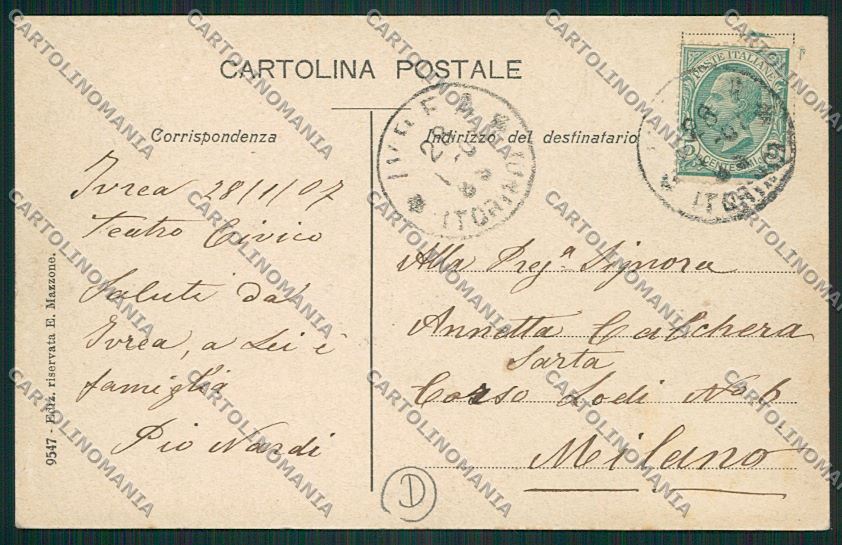 CARTOLINA POSTALE
Corrispondenza
Indirizzo del destinatario
Ivrea 28/1/07
Teatro Civico
Saluti da
Ivrea, a Lei e
famiglia
Pio Nardi
Alla Preg.ª Signora
Annetta Calchera
Sarta
Corso Lodi No 6
Milano
9547 - Ediz. riservata E. Mazzone.
POSTE ITALIANE
IVREA
(TORINO)
D
CARTOLINOMANIA